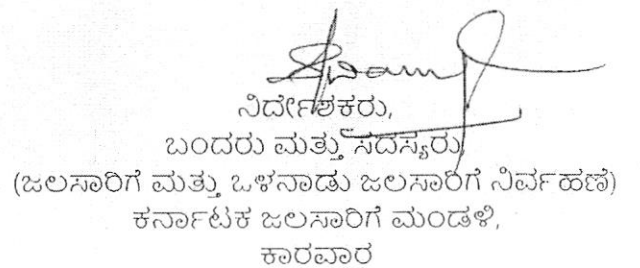 Swamy
ನಿರ್ದೇಶಕರು,
ಬಂದರು ಮತ್ತು ಸದಸ್ಯರು
(ಜಲಸಾರಿಗೆ ಮತ್ತು ಒಳನಾಡು ಜಲಸಾರಿಗೆ ನಿರ್ವಹಣೆ)
ಕರ್ನಾಟಕ ಜಲಸಾರಿಗೆ ಮಂಡಳಿ,
ಕಾರವಾರ